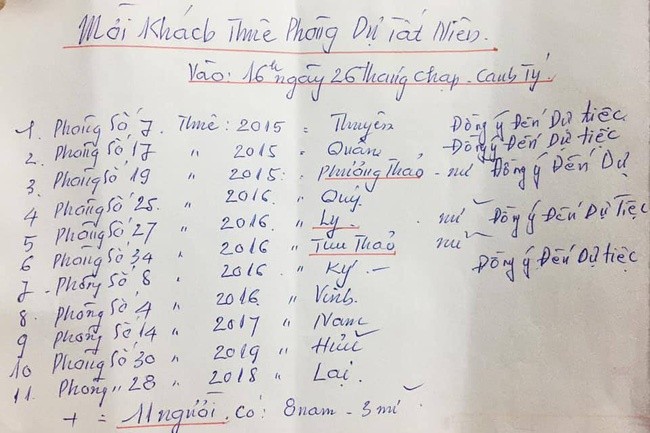 Mời Khách Thuê Phòng Dự Tất Niên.
Vào: 16h ngày 26 Tháng chạp. Canh Tý.
1. Phòng Số 7. Thuê: 2015 = Thuyên Đồng ý Đến Dự tiệc
2. Phòng Số 17 " 2015 - Quân Đồng ý Đến Dự tiệc
3. Phòng Số 19 " 2015: Phương Thảo - nữ Đồng ý Đến Dự
4 Phòng Số 25. " 2016. " Quý.
5 Phòng Số 27 " 2016. " Ly. nữ Đồng ý Đến Dự Tiệc
6 Phòng Số 34 " 2016 " Thu Thảo nữ
7 - Phòng Số 8 " 2016. " Kỳ. — Đồng ý Đến Dự tiệc
8. Phòng Số 4 " 2016 " Vinh.
9 Phòng Số 14 " 2017 " Nam
10 Phòng Số 30 " 2019 " Hữu
11. Phòng " 28 " 2018 " Lại.
+ = 11 người. Có: 8 nam - 3 nữ.